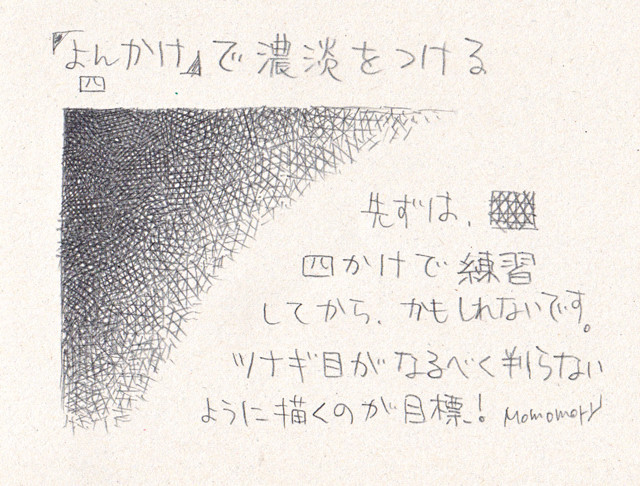 『よんかけ』で濃淡をつける
四
先ずは、
四かけで練習
してから、かもしれないです。
ツナギ目がなるべく判らない
ように描くのが目標!
Momomory